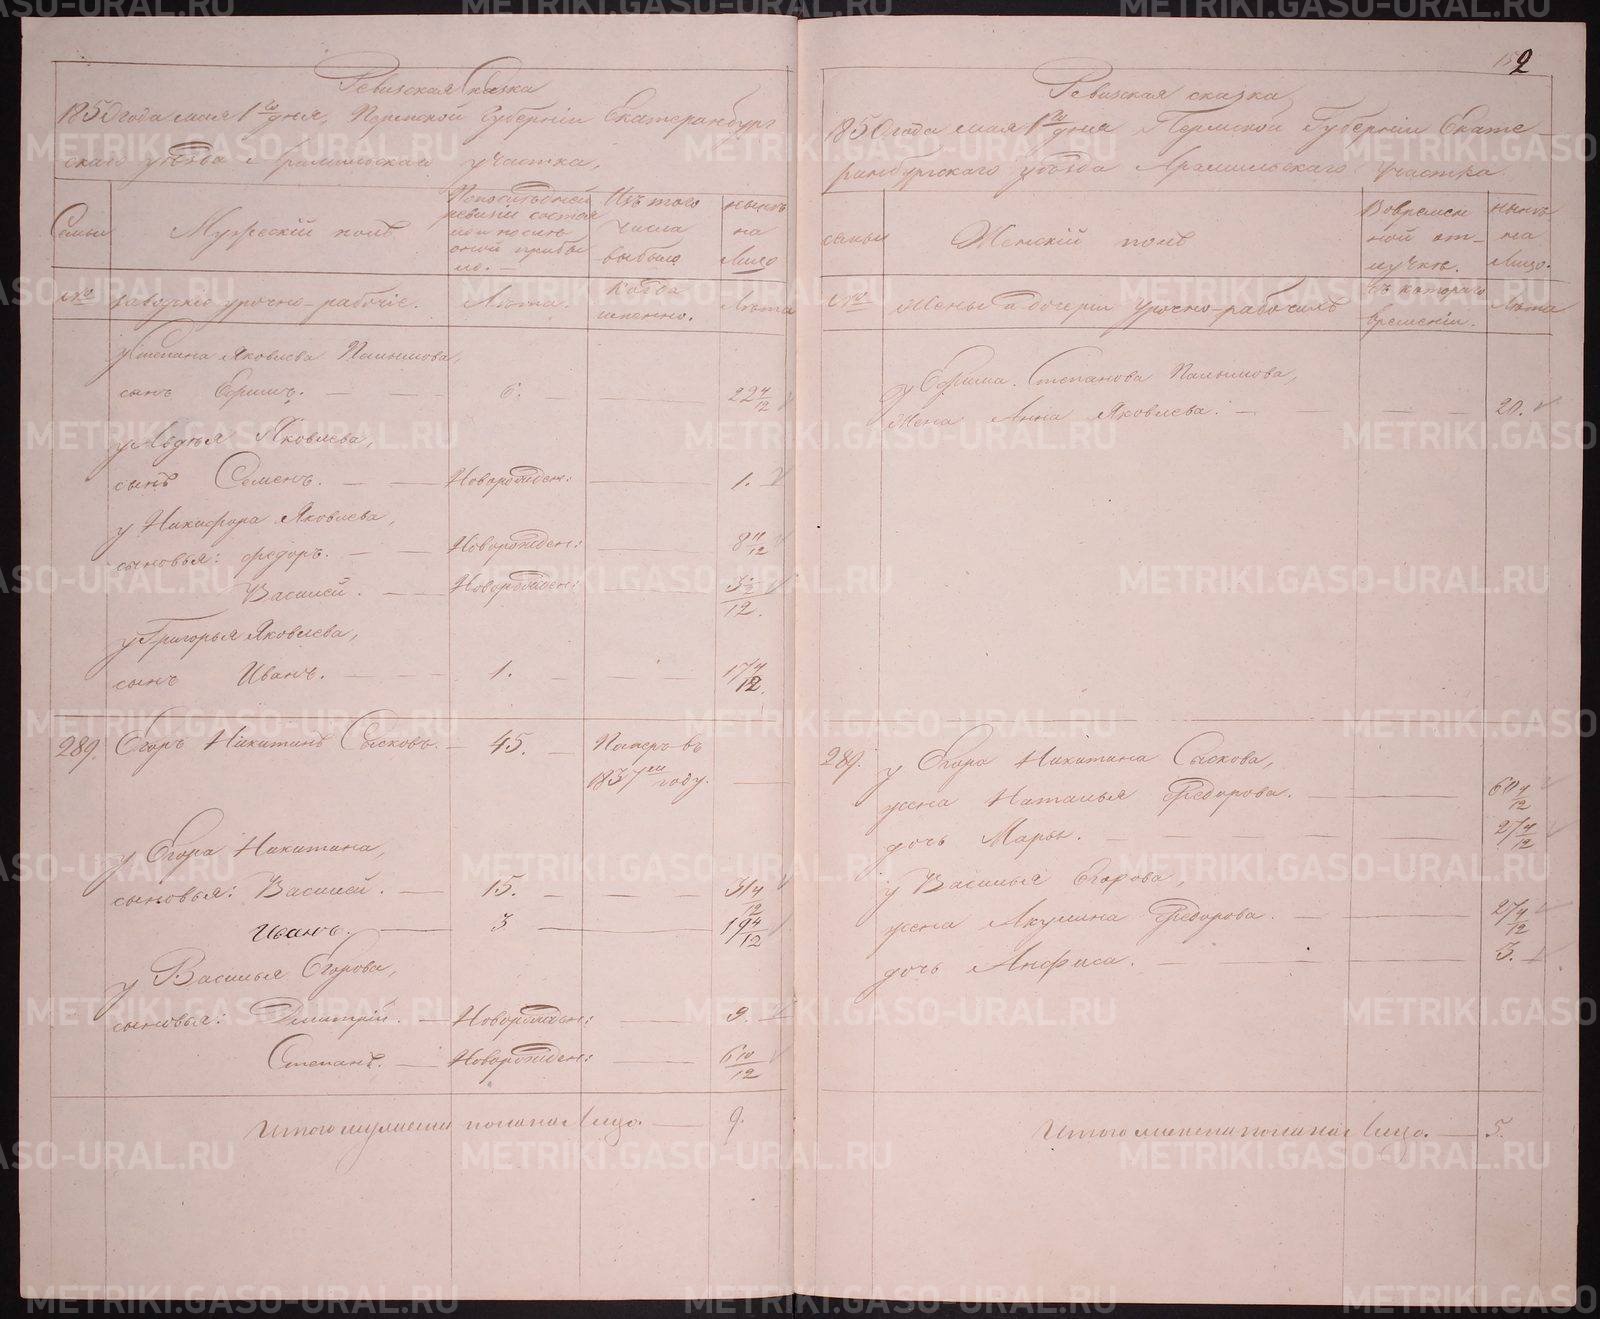 Ревизская сказка
1850 года мая 1го дня, Пермской Губернiи Екатеринбург
скаго уезда Арамильскаго участка,
Семьи
Мужескiй полъ
По последней ревизiи состояло и после оной прибыло.
Изъ того числа выбыло
ныне на лицо
№
заводскiе урочно-рабочiе.
Лета.
Когда именно.
Лета
у Степана Яковлева
сынъ Ефимъ. 6. 22 4/12
у Авдея Яковлева,
сынъ Семенъ. Новорожден: 1.
у Никифора Яковлева,
сыновья: Федоръ. Новорожден: 8 11/12
Василей. Новорожден: 3
у Григорья Яковлева,
сынъ Иванъ. 1. 17 4/12
289. Егоръ Никитинъ Сысковъ. 45. Померъ въ
1837м году.
у Егора Никитина,
сыновья: Василей. 15. 31 4/12
Иванъ. 3 19 4/12
у Василья Егорова,
сыновья: Дмитрiй. Новорожден: 9.
Степанъ. Новорожден: 6 10/12
Итого мужеска пола на лицо. 9.
152
Ревизская сказка
1850 года мая 1го дня Пермской Губернiи Екате-
ринбургскаго уезда Арамильскаго участка
семьи
Женскiй полъ
Во временной отлучке.
ныне на лицо.
№
Жены и дочери урочно-рабочихъ
Съ котораго времени.
Лета
у Ефима Степанова
жена Анна Яковлева. 20.
289. у Егора Никитина Сыскова,
жена Наталья Федорова. 60 4/12
дочь Марья. 27 4/12
у Василья Егорова,
жена Акулина Федорова. 27 4/12
дочь Анфиса. 3.
Итого женска пола на лицо. 5.
METRIKI.GASO-URAL.RU